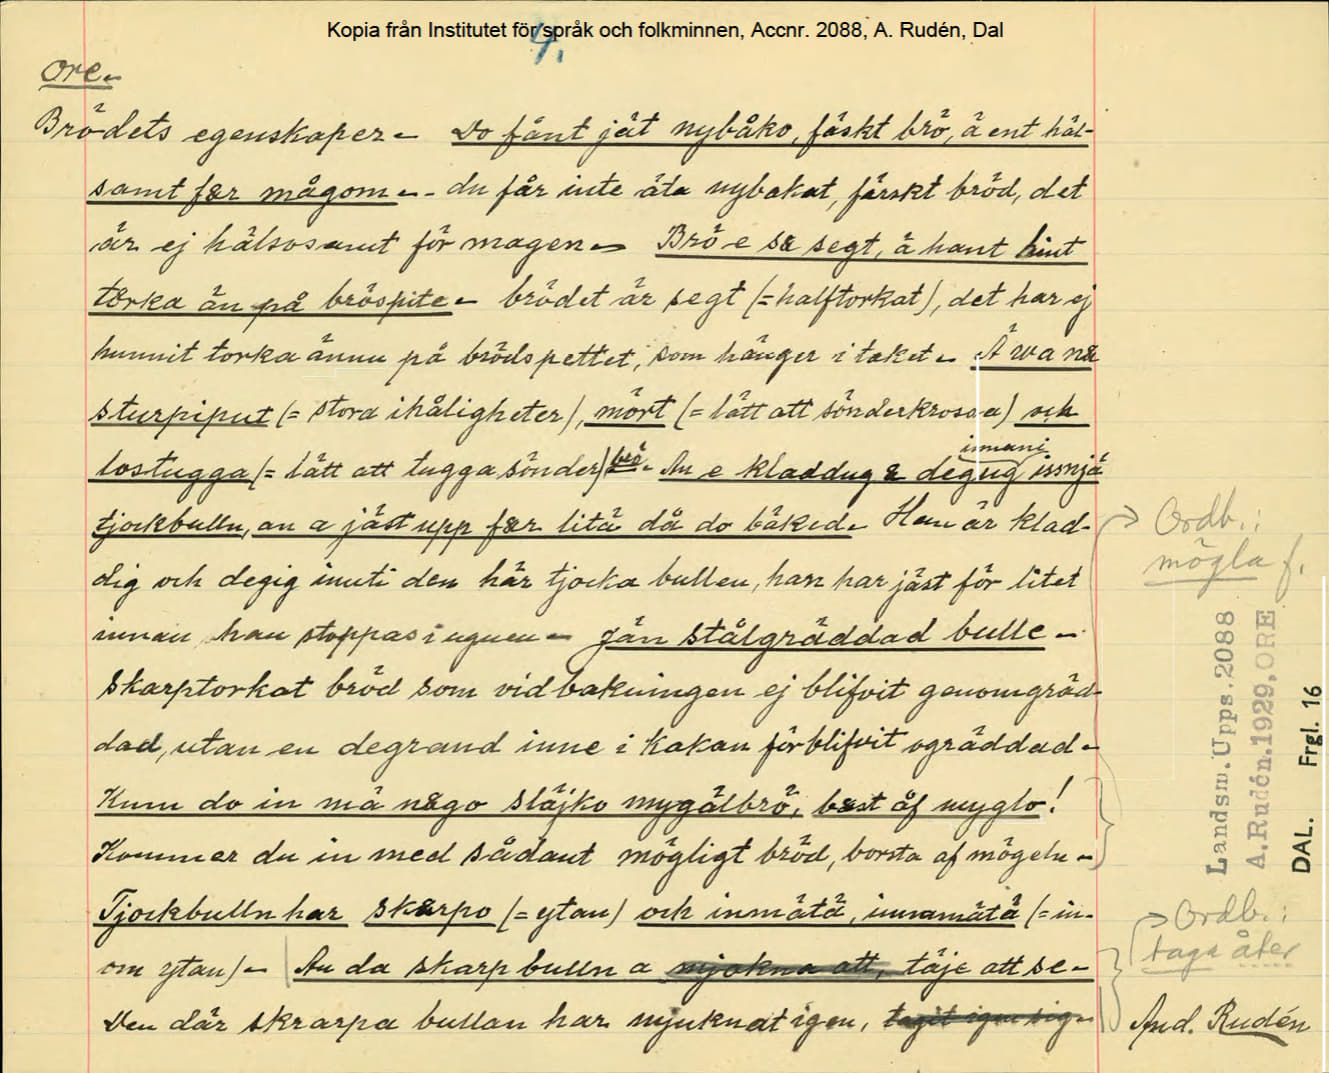 Kopia från Institutet för språk och folkminnen, Accnr. 2088, A. Rudén, Dal
4.
Ore.
Brödets egenskaper. Do fånt jät nybåko, fäskt brö, ä ent häl-
samt fær mågom. - du får inte äta nybakat, färskt bröd, det
är ej hälsosamt för magen. Brö e sæ segt, ä hant hint
tørka än på bröspite. brödet är segt (= halftorkat), det har ej
hunnit torka ännu på brödspettet, som hänger i taket. Ä wa næ
sturpiput (= stora ihåligheter), mört (= lätt att sönderkrossa) och
lostugga (= lätt att tugga sönder) brö. An e kladdug æ degug innani issnjä
tjockbulln, an a jäst upp fær litä då do båked. Han är klad-
dig och degig inuti den här tjocka bullen, han har jäst för litet
innan han stoppas i ugnen. Jän stålgräddad bulle.
skarptorkat bröd som vid bakningen ej blifvit genomgräd-
dad, utan en degrand inne i kakan förblifvit ogräddad.
Kum do in mä någo släjko mygälbrö, bøst åf myglo!
Kommer du in med sådant mögligt bröd, borsta af mögeln.
Tjockbulln har skårpo (= ytan) och inmätä, innamätä (= in-
om ytan). An da skarpbulln a mjokna att, täje att se.
Den där skrarpa bullan har mjuknat igen, tagit igen sig.
Ordb.:
mögla f.
Landsm. Upps. 2088
A. Rudén. 1929, ORE
DAL. Frgl. 16
Ordb.:
taga åter
And. Rudén